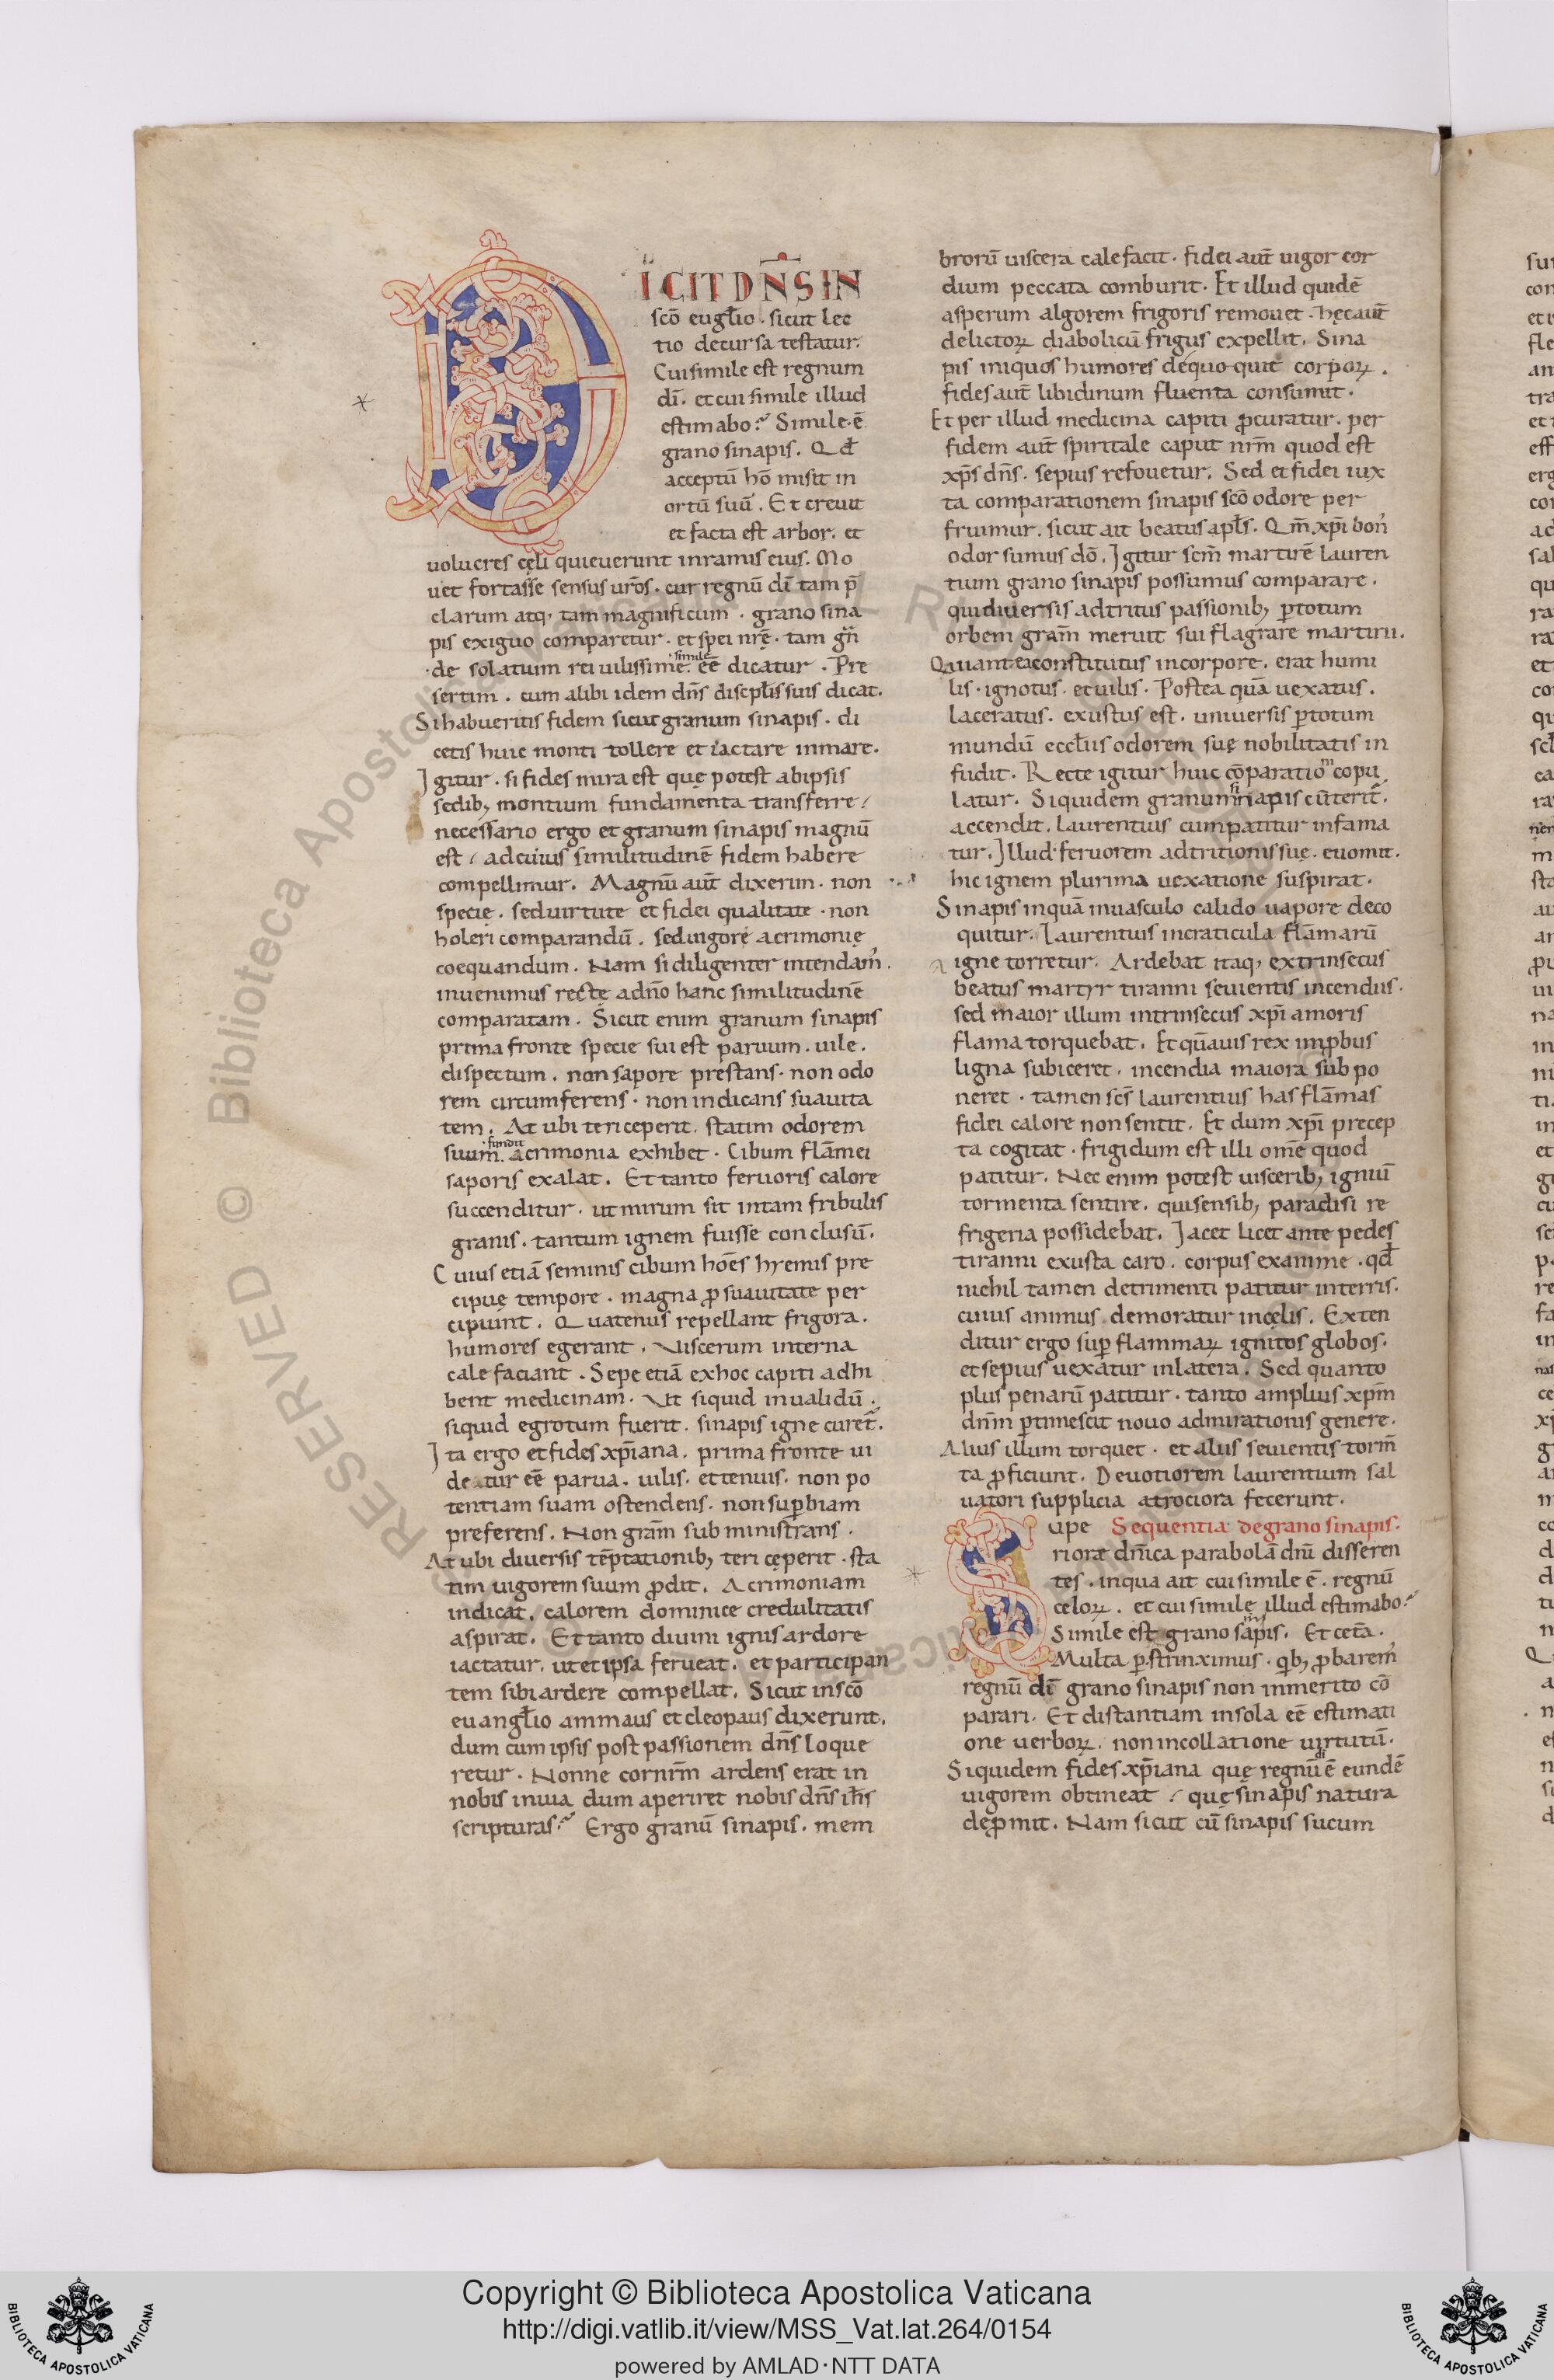 DICIT DN̄S IN
sc̄o euglīo. sicut lec
tio decursa testatur.
Cui simile est regnum
dī. et cui simile illud
estimabo? Simile ē
grano sinapis. Qd̄
acceptū hō misit in
ortū suū. Et creuit
et facta est arbor. et
uolucres cęli quieuerunt in ramis eius. Mo
uet fortasse sensus ur̄os. cur regnū dī tam p̄
clarum atq; tam magnificum. grano sina
pis exiguo comparetur. et spei nr̄ę. tam gn̄
de solatium rei uilissime simile ee̅ dicatur. Pre
sertim. cum alibi idem dn̄s discipłis suis dicat.
Si habueritis fidem sicut granum sinapis. di
cetis huic monti tollere et iactare in mare.
Igitur. si fides mira est quę potest ab ipsis
sedib; montium fundamenta transferre/
necessario ergo et granum sinapis magnū
est/ ad cuius similitudinē fidem habere
compellimur. Magnū aut̄ dixerim. non
specię. sed uirtute et fidei qualitate. non
holeri comparandū. sed uigore acrimonię
coequandum. Nam si diligenter intendam'.
inuenimus recte ad dn̄o hanc similitudinē
comparatam. Sicut enim granum sinapis
prima fronte specie sui est paruum. uile.
dispectum. non sapore prestans. non odo
rem circumferens. non indicans suauita
tem. At ubi teri ceperit. statim odorem
suum fundit. acrimonia exhibet. Cibum flāmei
saporis exalat. Et tanto feruoris calore
succenditur. ut mirum sit in tam fribulis
granis. tantum ignem fuisse conclusū.
Cuius etiā seminis cibum hoēs hyemis pre
cipuę tempore. magna ꝓ suauitate per
cipiunt. Quatenus repellant frigora.
humores egerant. Viscerum interna
calefaciant. Sepe etiā ex hoc capiti adhi
bent medicinam. Vt siquid inualidū.
siquid egrotum fuerit. sinapis igne curet̄.
Ita ergo et fides xp̄iana. prima fronte ui
deatur ee̅ parua. uilis. et tenuis. non po
tentiam suam ostendens. non suꝑbiam
preferens. Non gram̄ subministrans.
At ubi diuersis tēptationib; teri cęperit. sta
tim uigorem suum ꝓdit. Acrimoniam
indicat. calorem dominice credulitatis
aspirat. Et tanto diuini ignis ardore
iactatur. ut et ipsa ferueat. et participan
tem sibi ardere compellat. Sicut in sc̄o
euangł̄io ammaus et cleopaus dixerunt.
dum cum ipsis post passionem dn̄s loque
retur. Nonne cor nr̄m ardens erat in
nobis in uia dum aperiret nobis dn̄s ih̄s
scripturas? Ergo granū sinapis. mem
brorū uiscera calefacit. fidei aut̄ uigor cor
dium peccata comburit. Et illud quidē
asperum algorem frigoris remouet. hęc aut̄
delictoꝝ diabolicū frigus expellit. Sina
pis iniquos humores dequoquit corporꝝ.
fides aut̄ libidinum fluenta consumit.
Et per illud medicina capiti ꝓcuratur. per
fidem aut̄ spiritale caput nr̄m quod est
xp̄s dn̄s. sepius refouetur. Sed et fidei iux
ta comparationem sinapis sc̄o odore per
fruimur. sicut ait beatus apł̄s. Qm̄ xp̄i bon'
odor sumus dō. Igitur scm̄ martirē lauren
tium grano sinapis possumus comparare.
qui diuersis adtritus passionib; ꝑ totum
orbem gram̄ meruit sui flagrare martirii.
Qui ante a constitutus in corpore. erat humi
lis. ignotus. et uilis. Postea quā uexatus.
laceratus. exustus est. uniuersis ꝑ totum
mundū eccłiis odorem suę nobilitatis in
fudit. Recte igitur huic cōparatio copu
latur. Siquidem granum sinapis cū terit̄.
accenditur. Laurentius cum patitur inflama
tur. Illud feruorem adtritionis suę. euomit.
hic ignem plurima uexatione suspirat.
Sinapis inquā in uasculo calido uapore deco
quitur. Laurentius in craticula flāmarū
igne torretur. Ardebat itaq; extrinsecus
beatus martyr tiranni seuientis incendiis.
sed maior illum intrinsecus xp̄i amoris
flama torquebat. Et quāuis rex improbus
ligna subiceret. incendia maiora sub po
neret. tamen sc̄s laurentius has flāmas
fidei calore non sentit. Et dum xp̄i precep
ta cogitat. frigidum est illi om̄e quod
patitur. Nec enim potest uiscerib; igniū
tormenta sentire. qui sensib; paradisi re
frigeria possidebat. Iacet licet ante pedes
tiranni exusta caro. corpus exanime. qd̄
nichil tamen detrimenti patitur in terris.
cuius animus demoratur in cęlis. Exten
ditur ergo suꝑ flammaꝝ ignitos globos.
et sepius uexatur in latera. Sed quanto
plus penarū patitur. tanto amplius xp̄m
dn̄m ꝑtimescit nouo admirationis genere.
Alius illum torquet. et alius seuientis torm̄
ta ꝓficiunt. Deuotiorem laurentium sal
uatori supplicia atrociora fecerunt.
Supe Sequentia de grano sinapis.
riore dn̄ica parabolā dn̄i disseren
tes. in qua ait cui simile ē. regnū
celoꝝ. et cui simile illud estimabo?
Simile est grano sinapis. Et cet̄a.
Multa ꝑstrinximus. qib; ꝓbarem'
regnū dī grano sinapis non inmerito cō
parari. Et distantiam in sola ee̅ estimati
one uerboꝝ. non in collatione uirtutū.
Siquidem fides xp̄iana quę regnū di ē eundē
uigorem obtineat/ quę sinapis natura
deꝓmit. Nam sicut cū sinapis sucum
Copyright © Biblioteca Apostolica Vaticana
http://digi.vatlib.it/view/MSS_Vat.lat.264/0154
powered by AMLAD·NTT DATA
BIBLIOTECA APOSTOLICA VATICANA
BIBLIOTECA APOSTOLICA VATICANA